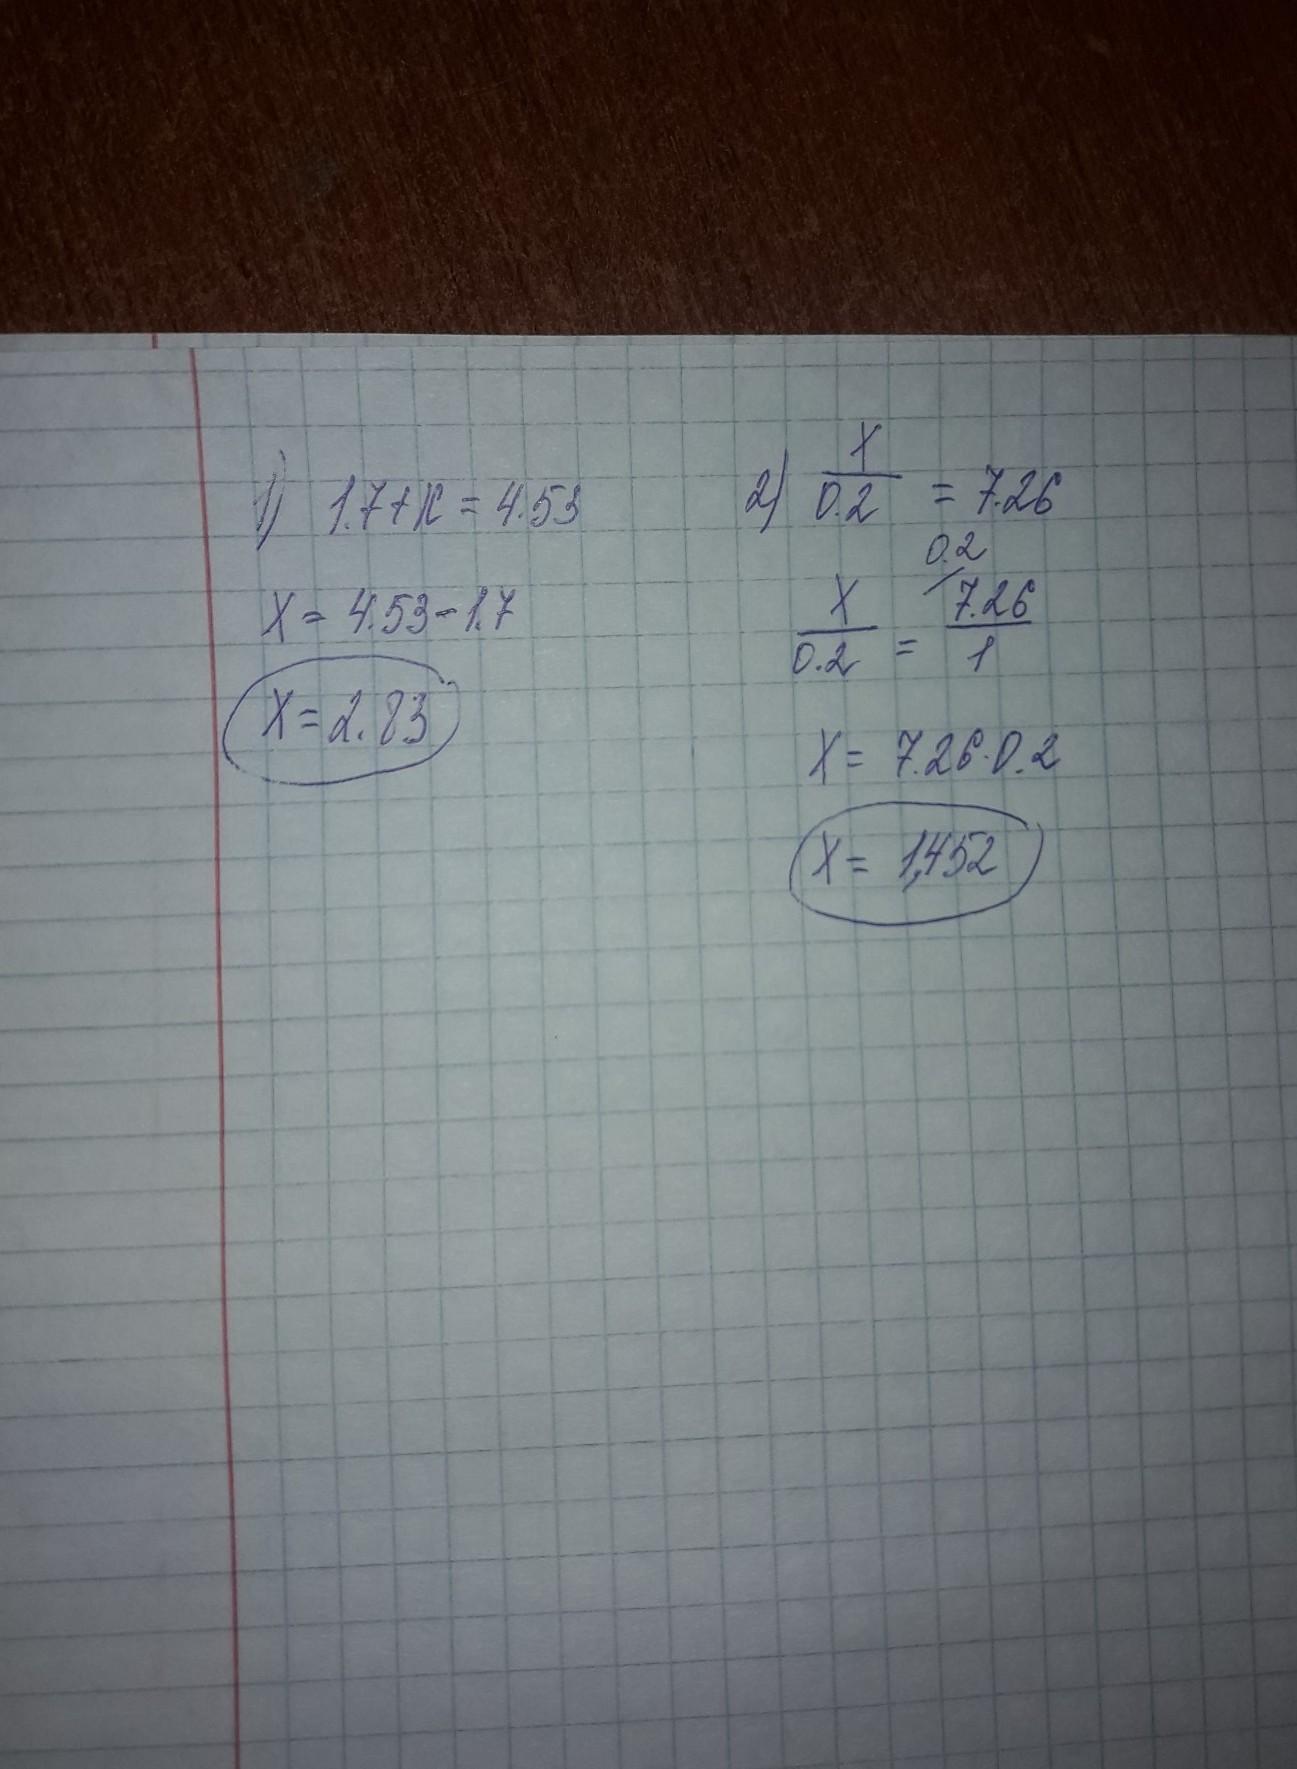 1) 1.7+x=4.53
X=4.53-1.7
X=2.83
2) X/0.2 = 7.26
0.2
X/0.2 = 7.26/1
X= 7.26·0.2
X= 1,452